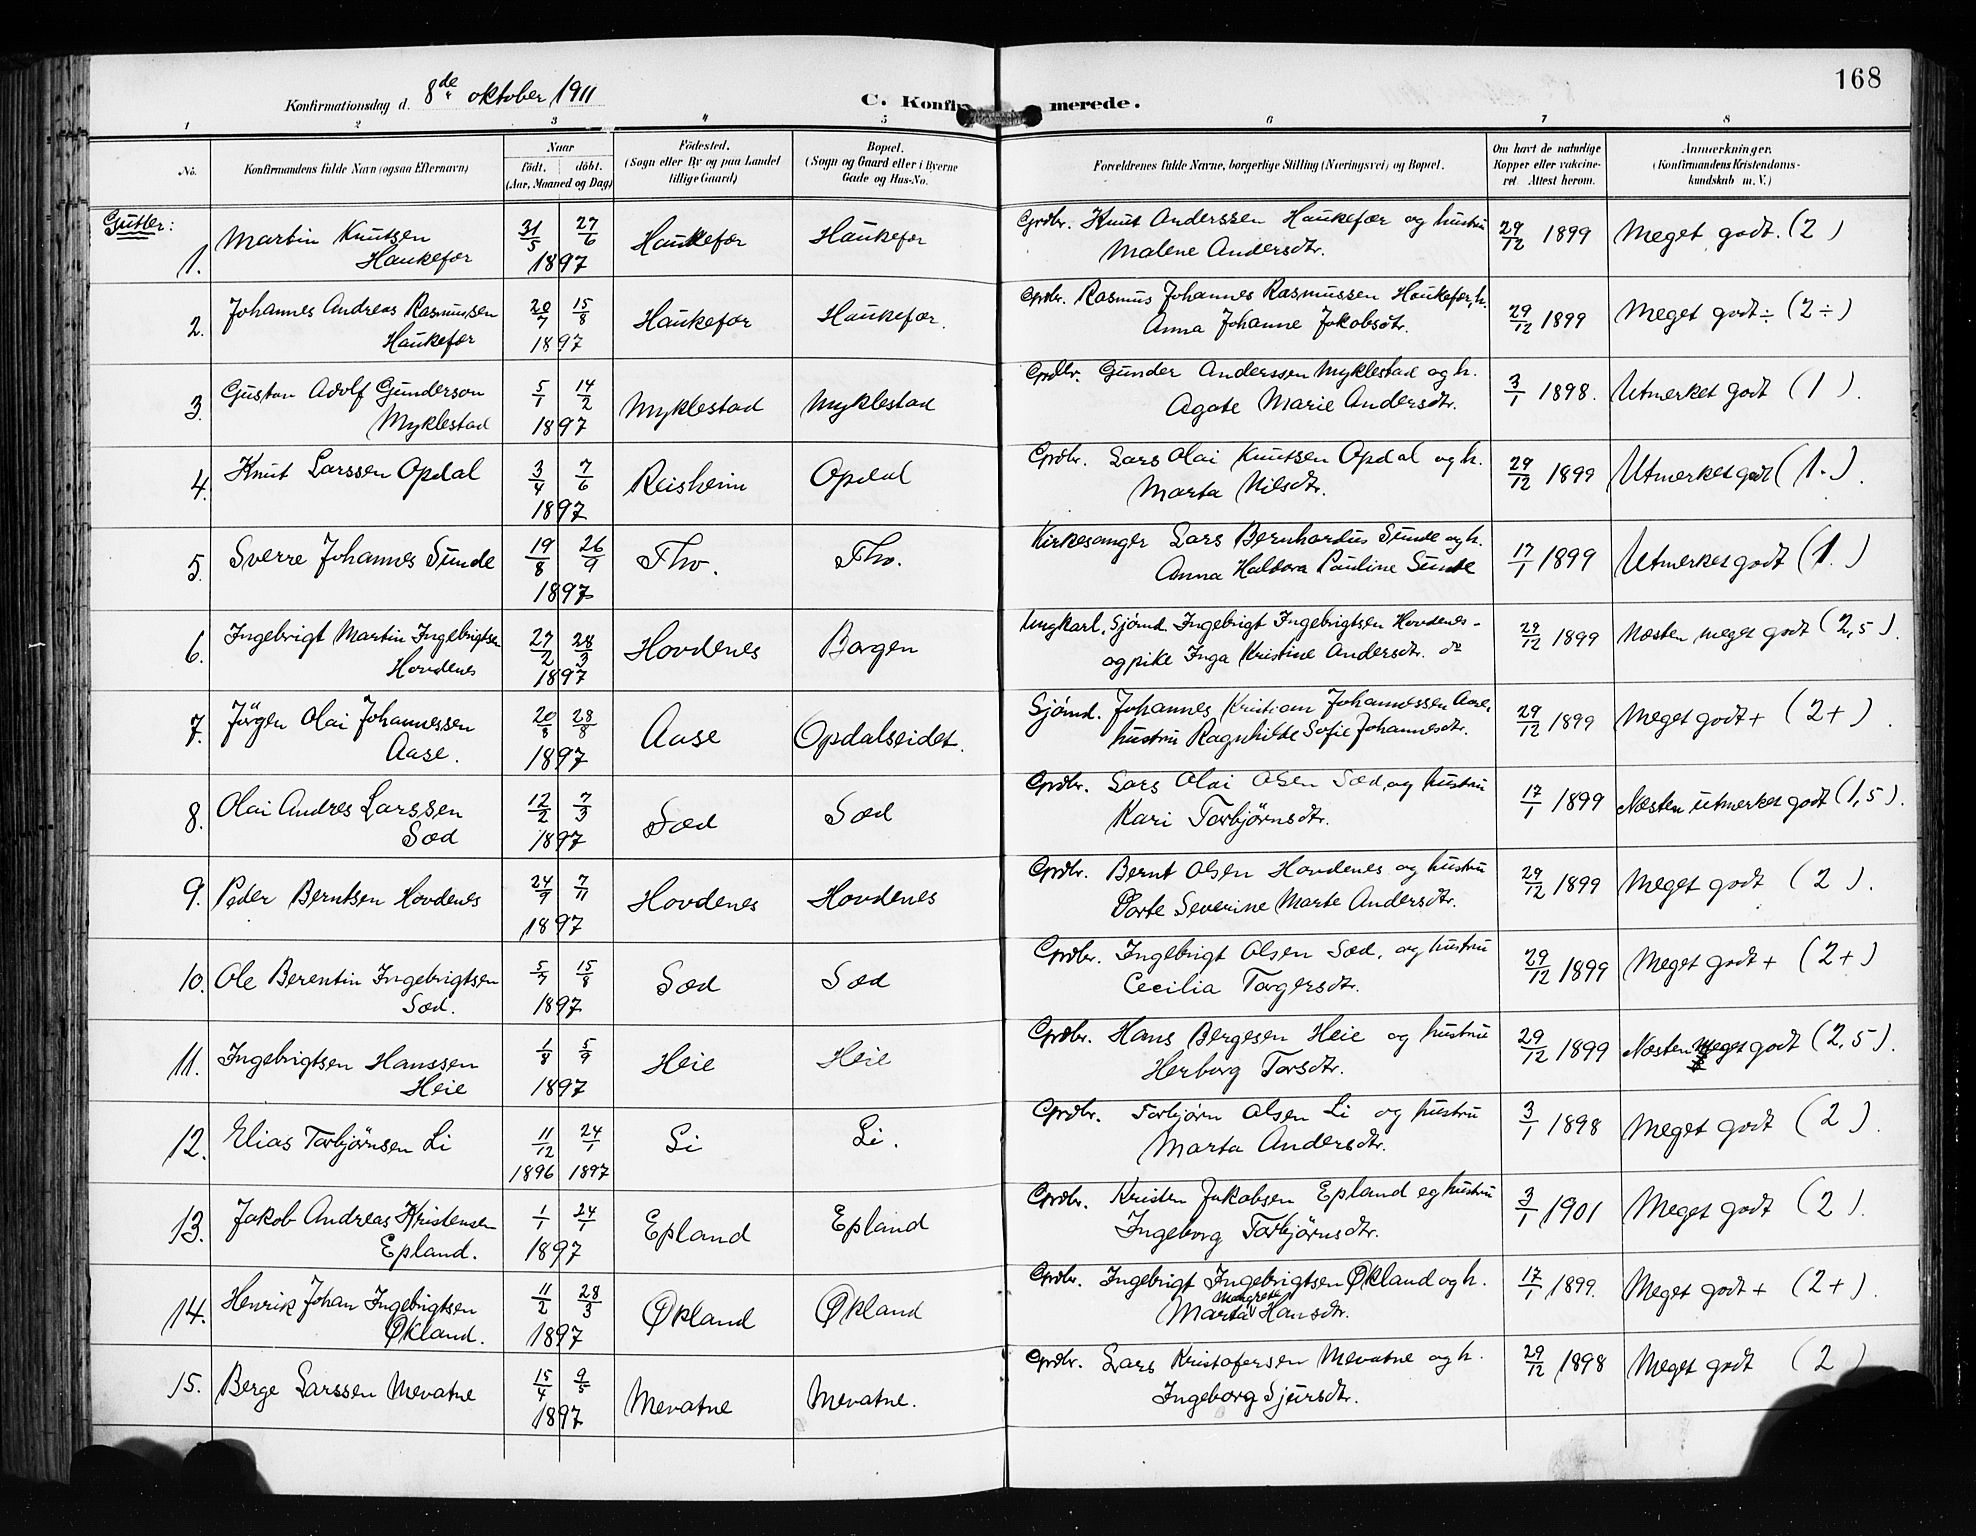 168
Konfirmationsdag d. 8de oktober 1911
C. Konfirmerede.
1 2 3 4 5 6 7 8
No. Konfirmandens fulde Navn (ogsaa Efternavn) Naar født. døbt. (Aar, Maaned og Dag) Fødested. (Sogn eller By og paa Landet tillige Gaard) Bopæl. (Sogn og Gaard eller i Byerne Gade og Hus-No. Forældrenes fulde Navne, borgerlige Stilling (Næringsvei) og Bopæl. Om havt de naturlige Kopper eller vakcineret Attest herom. Anmærkninger. (Konfirmandens Kristendomskundskab m. V.)
Gutter:
1. Martin Knutsen Haukefær 31/5 27/6 1897 Haukefær Haukefær Grdbr. Knut Anderssen Haukefær og hustru Malene Andersdtr. 29/12 1899 Meget godt. (2)
2. Johannes Andreas Rasmussen Haukefær 20/7 15/8 1897 Haukefær Haukefær. Grdbr. Rasmus Johannes Rasmussen Haukefær, h. Anna Johanne Jakobsdtr. 29/12 1899 Meget godt ÷ (2 ÷)
3. Gustav Adolf Gunderson Myklestad 5/1 14/2 1897 Myklestad Myklestad Grdbr. Gunder Anderssen Myklestad og h. Agate Marie Andersdtr. 3/1 1898. Utmerket godt (1).
4. Knut Larssen Opdal 3/4 7/6 1897 Reisheim Opdal Grdbr. Lars Olai Knutsen Opdal og h. Marta Nilsdtr. 29/12 1899 Utmerket godt (1.).
5. Sverre Johannes Sunde 19/8 26/9 1897 Tho. Tho. Kirkesanger Lars Bernhardus Sunde og h. Anna Haldora Pauline Sunde 17/1 1899 Utmerket godt (1.)
6. Ingebrigt Martin Ingebrigtsen Hovdenes 27/2 28/3 1897 Hovdenes Borgen Ungkarl, Sjømd. Ingebrigt Ingebrigtsen Hovdenes - og pike Inga Kristine Andersdtr. do 29/12 1899 Næsten meget godt (2,5).
7. Jörgen Olai Johannessen Aase. 20/8 28/8 1897 Aase Opdalseidet. Sjømd. Johannes Kristian Johannessen Aase, hustru Ragnhilde Sofie Johannesdtr. 29/12 1899 Meget godt + (2+).
8. Olai Andres Larssen Sæd 12/2 7/3 1897 Sæd Sæd Grdbr. Lars Olai Olsen Sæd, og hustru Kari Torbjørnsdtr. 17/1 1899 Næsten utmerket godt (1,5).
9. Peder Berntsen Hovdenes 24/9 7/11 1897 Hovdenes Hovdenes Grdbr. Bernt Olsen Hovdenes og hustru Dorte Severine Marte Andersdtr. 29/12 1899 Meget godt (2).
10. Ole Berentin Ingebrigtsen Sæd. 5/7 15/8 1897 Sæd Sæd Grdbr. Ingebrigt Olsen Sæd, og hustru Cecilia Torgersdtr. 29/12 1899 Meget godt + (2+)
11. Ingebrigtsen Hanssen Heie 1/8 5/9 1897 Heie Heie Grdbr. Hans Bergesen Heie og hustru Herborg Torsdtr. 29/12 1899 Næsten meget godt (2,5).
12. Elias Torbjørnsen Li 11/12 1896 24/1 1897 Li Li. Grdbr. Torbjørn Olsen Li og hustru Marta Andersdtr. 3/1 1898 Meget godt (2).
13. Jakob Andreas Kristensen Epland. 1/1 24/1 1897 Epland Epland Grdbr. Kristen Jakobsen Epland og hustru Ingeborg Torbjørnsdtr. 3/1 1901 Meget godt (2).
14. Henrik Johan Ingebrigtsen Økland. 11/2 28/3 1897 Økland Økland Grdbr. Ingebrigt Ingebrigtsen Økland og h. Marta Margrete Hansdtr. 17/1 1899. Meget godt + (2+).
15. Berge Larssen Mevatne 15/4 9/5 1897 Mevatne Mevatne. Grdbr. Lars Kristofersen Mevatne og h. Ingeborg Sjursdtr. 29/12 1898 Meget godt (2)